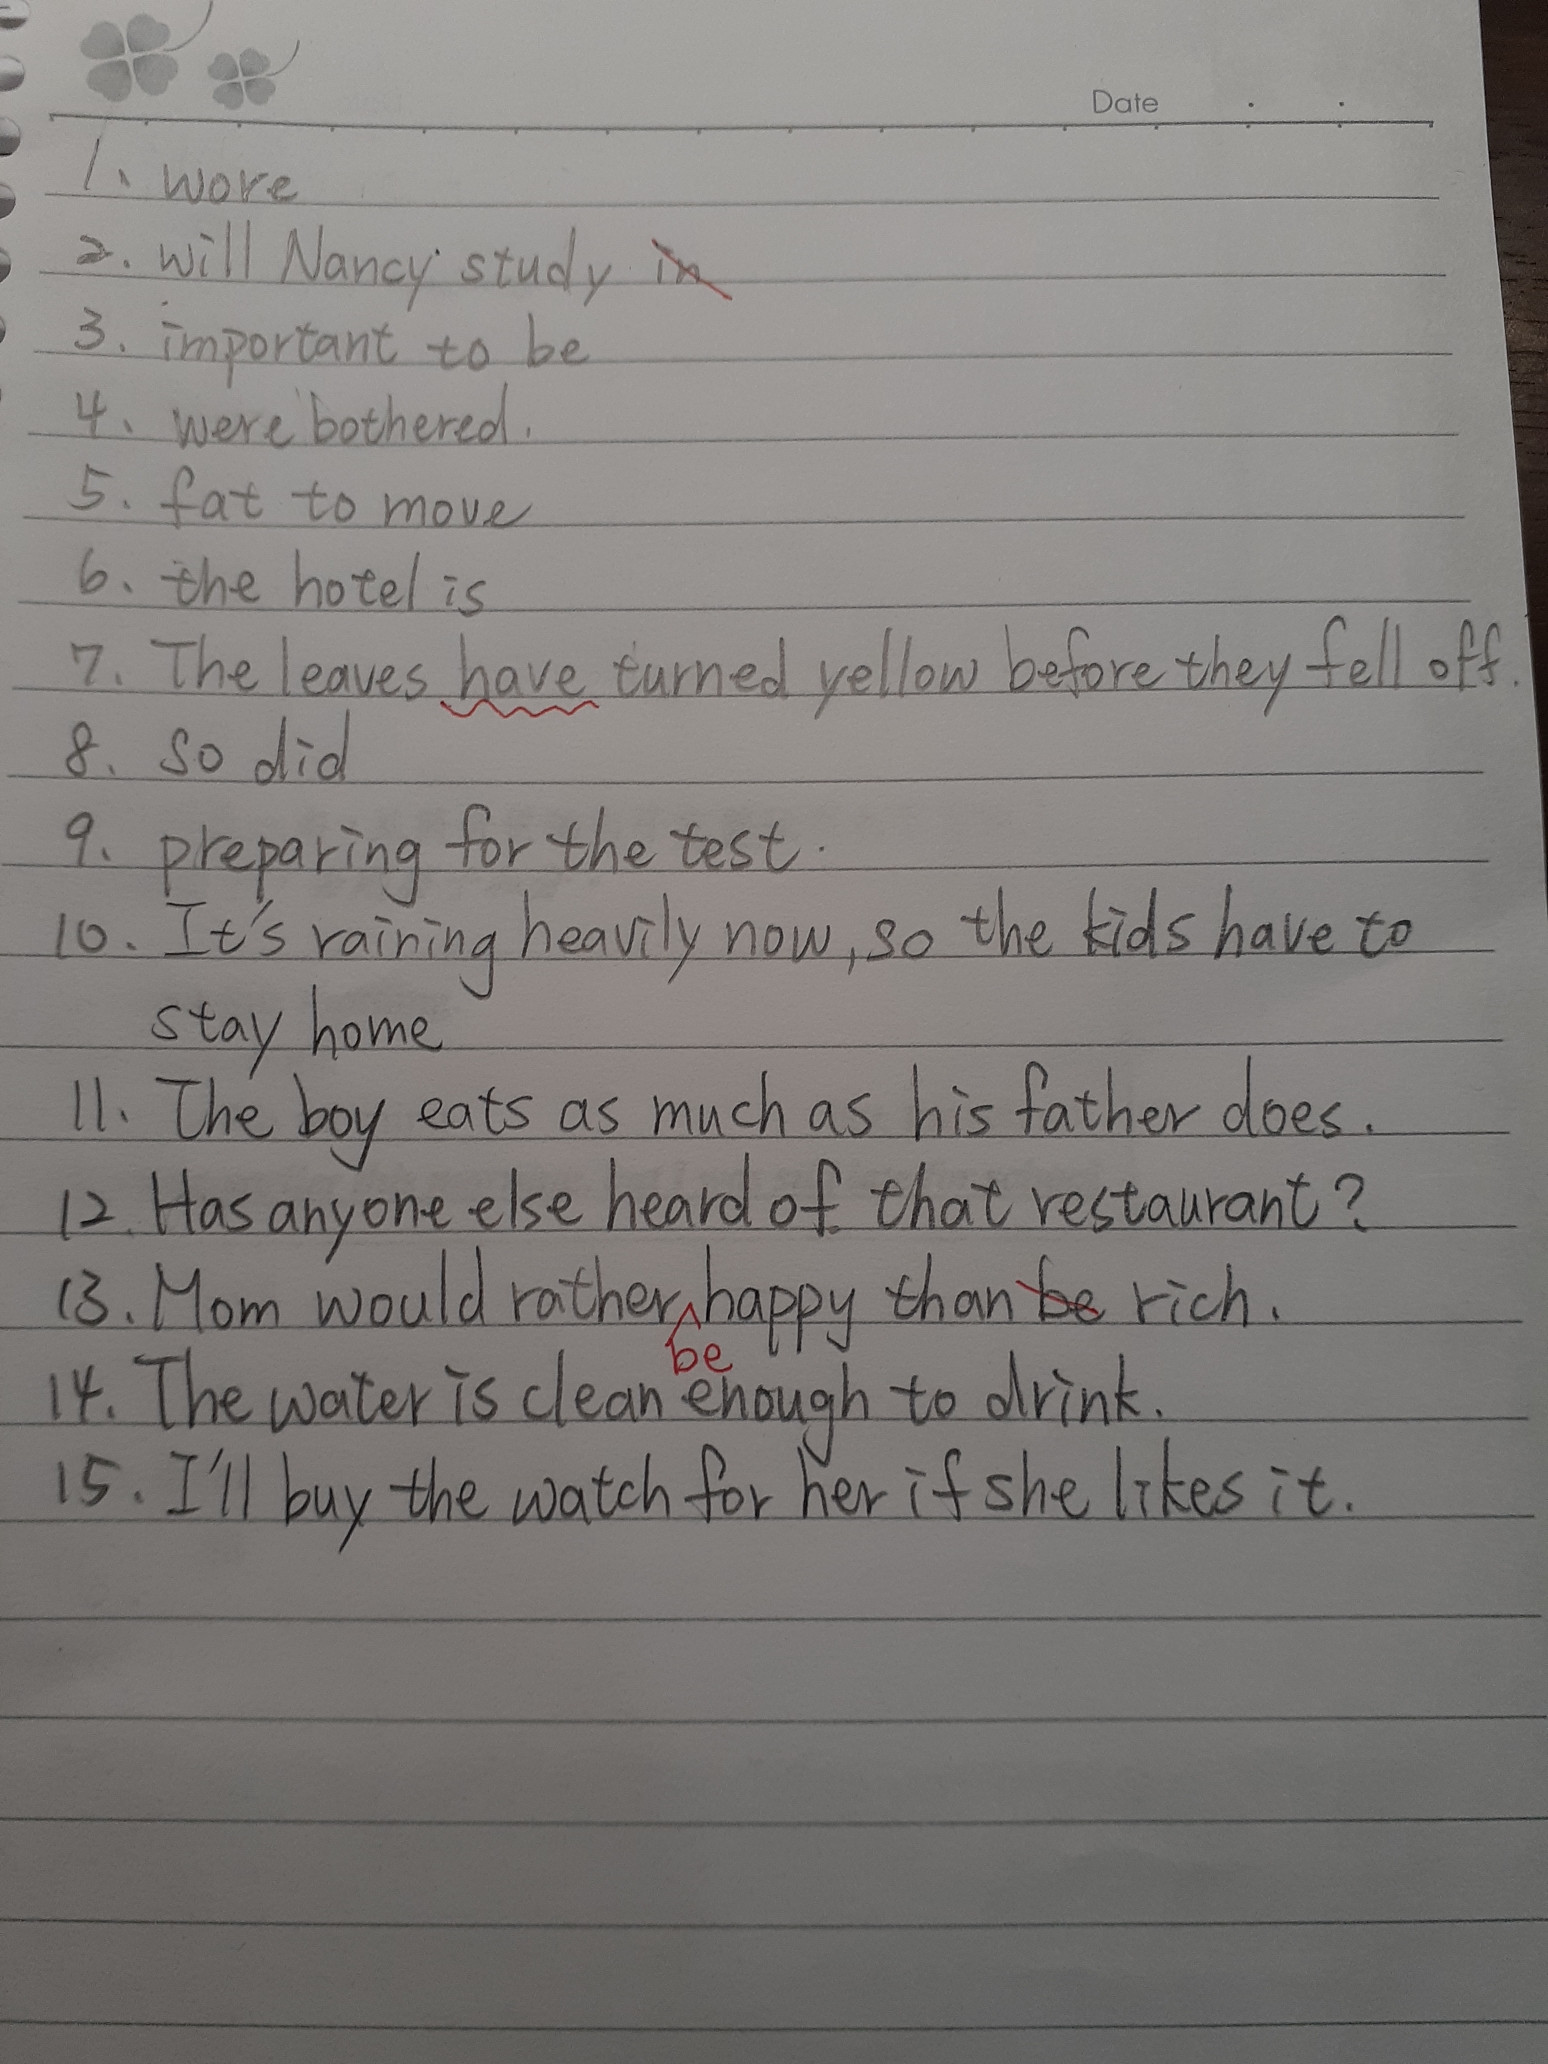 Date
1. wore
2. will Nancy study in
3. important to be
4. were bothered.
5. fat to move
6. the hotel is
7. The leaves have turned yellow before they fell off.
8. so did
9. preparing for the test.
10. It's raining heavily now, so the kids have to
stay home
11. The boy eats as much as his father does.
12. Has anyone else heard of that restaurant?
13. Mom would rather happy than be rich.
be
14. The water is clean enough to drink.
15. I'll buy the watch for her if she likes it.